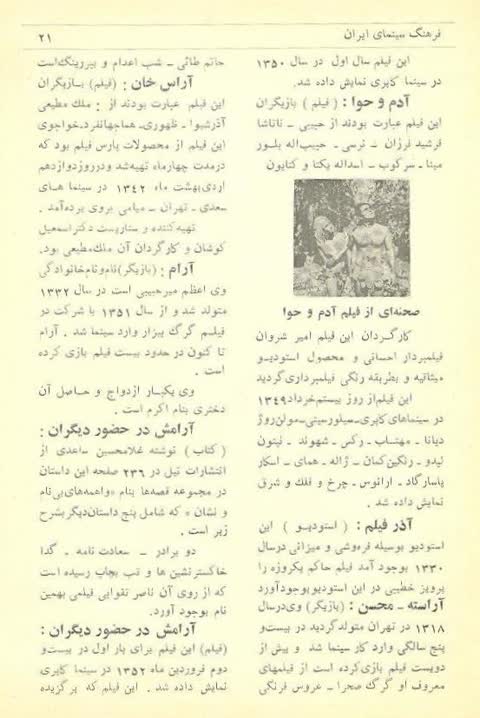 فرهنگ سینمای ایران
۲۱
این فیلم سال اول در سال ۱۳۵۰
در سینما کاپری نمایش داده شد.
آدم و حوا : ( فیلم ) بازیگران
این فیلم عبارت بودند از حبیبی ـ ناتاشا
فرشید فرزان ـ نرسی ـ حبیب‌اله بلور
مینا ـ سرکوب ـ اسداله یکتا و کتایون
صحنه‌ای از فیلم آدم و حوا
کارگردان این فیلم امیر شروان
فیلمبردار احسانی و محصول استودیو
میثاقیه و بطریقه رنگی فیلمبرداری گردید
این فیلم از روز بیستم خرداد ۱۳۴۹
در سینماهای کاپری ـ سیلورسیتی ـ مولن‌روژ
دیانا ـ مهتاب ـ رکس ـ شهوند ـ نپتون
لیدو ـ رنگین‌کمان ـ ژاله ـ همای ـ اسکار
پاسارگاد ـ ارانوس ـ چرخ و فلک و شرق
نمایش داده شد .
آذر فیلم : ( استودیو ) این
استودیو بوسیله فره‌وشی و میزانی در سال
۱۳۳۰ بوجود آمد فیلم حاکم یکروزه را
پرویز خطیبی در این استودیو بوجود آورد
آراسته ـ محسن : (بازیگر) وی در سال
۱۳۱۸ در تهران متولد گردید در بیست و
پنج سالگی وارد کار سینما شد و بیش از
دویست فیلم بازی کرده است از فیلمهای
معروف او گرگ صحرا ـ عروس فرنگی
حاتم طائی ـ شب اعدام و بیررینگ است
آراس خان : (فیلم) بازیگران
این فیلم عبارت بودند از : ملک مطیعی
آذرشیوا ـ ظهوری ـ هما جهانفرد ـ خواجوی
این فیلم از محصولات پارس فیلم بود که
در مدت چهار ماه تهیه شد و در روز دوازدهم
اردیبهشت ماه ۱۳۴۲ در سینما های
سعدی ـ تهران ـ میامی بروی پرده آمد .
تهیه کننده و سناریست دکتر اسمعیل
کوشان و کارگردان آن ملک مطیعی بود.
آرام : (بازیگر) نام و نام خانوادگی
وی اعظم میرحبیبی است در سال ۱۳۳۲
متولد شد و از سال ۱۳۵۱ با شرکت در
فیلم گرگ بیزار وارد سینما شد . آرام
تا کنون در حدود بیست فیلم بازی کرده
است .
وی یکبار ازدواج و حاصل آن
دختری بنام اکرم است .
آرامش در حضور دیگران :
( کتاب ) نوشته غلامحسین ساعدی از
انتشارات نیل در ۲۳۶ صفحه این داستان
در مجموعه قصه‌ها بنام «واهمه‌های بی‌نام
و نشان » که شامل پنج داستان دیگر بشرح
زیر است .
دو برادر ـ سعادت نامه . گدا
خاکسترنشین ها و تب بچاپ رسیده است
که از روی آن ناصر تقوایی فیلمی بهمین
نام بوجود آورد.
آرامش در حضور دیگران :
(فیلم) این فیلم برای بار اول در بیست و
دوم فروردین ماه ۱۳۵۲ در سینما کاپری
نمایش داده شد . این فیلم که برگزیده